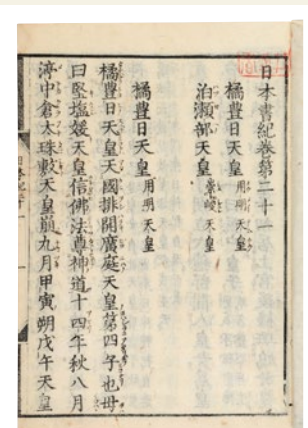 日本書紀卷第二十一
橘豐日天皇 用明天皇
泊瀨部天皇 崇峻天皇
橘豐日天皇 用明天皇
橘豐日天皇天國排開廣庭天皇第四子也母
曰堅塩媛天皇信佛法尊神道十四年秋八月
渟中倉太珠敷天皇崩九月甲寅朔戊午天皇